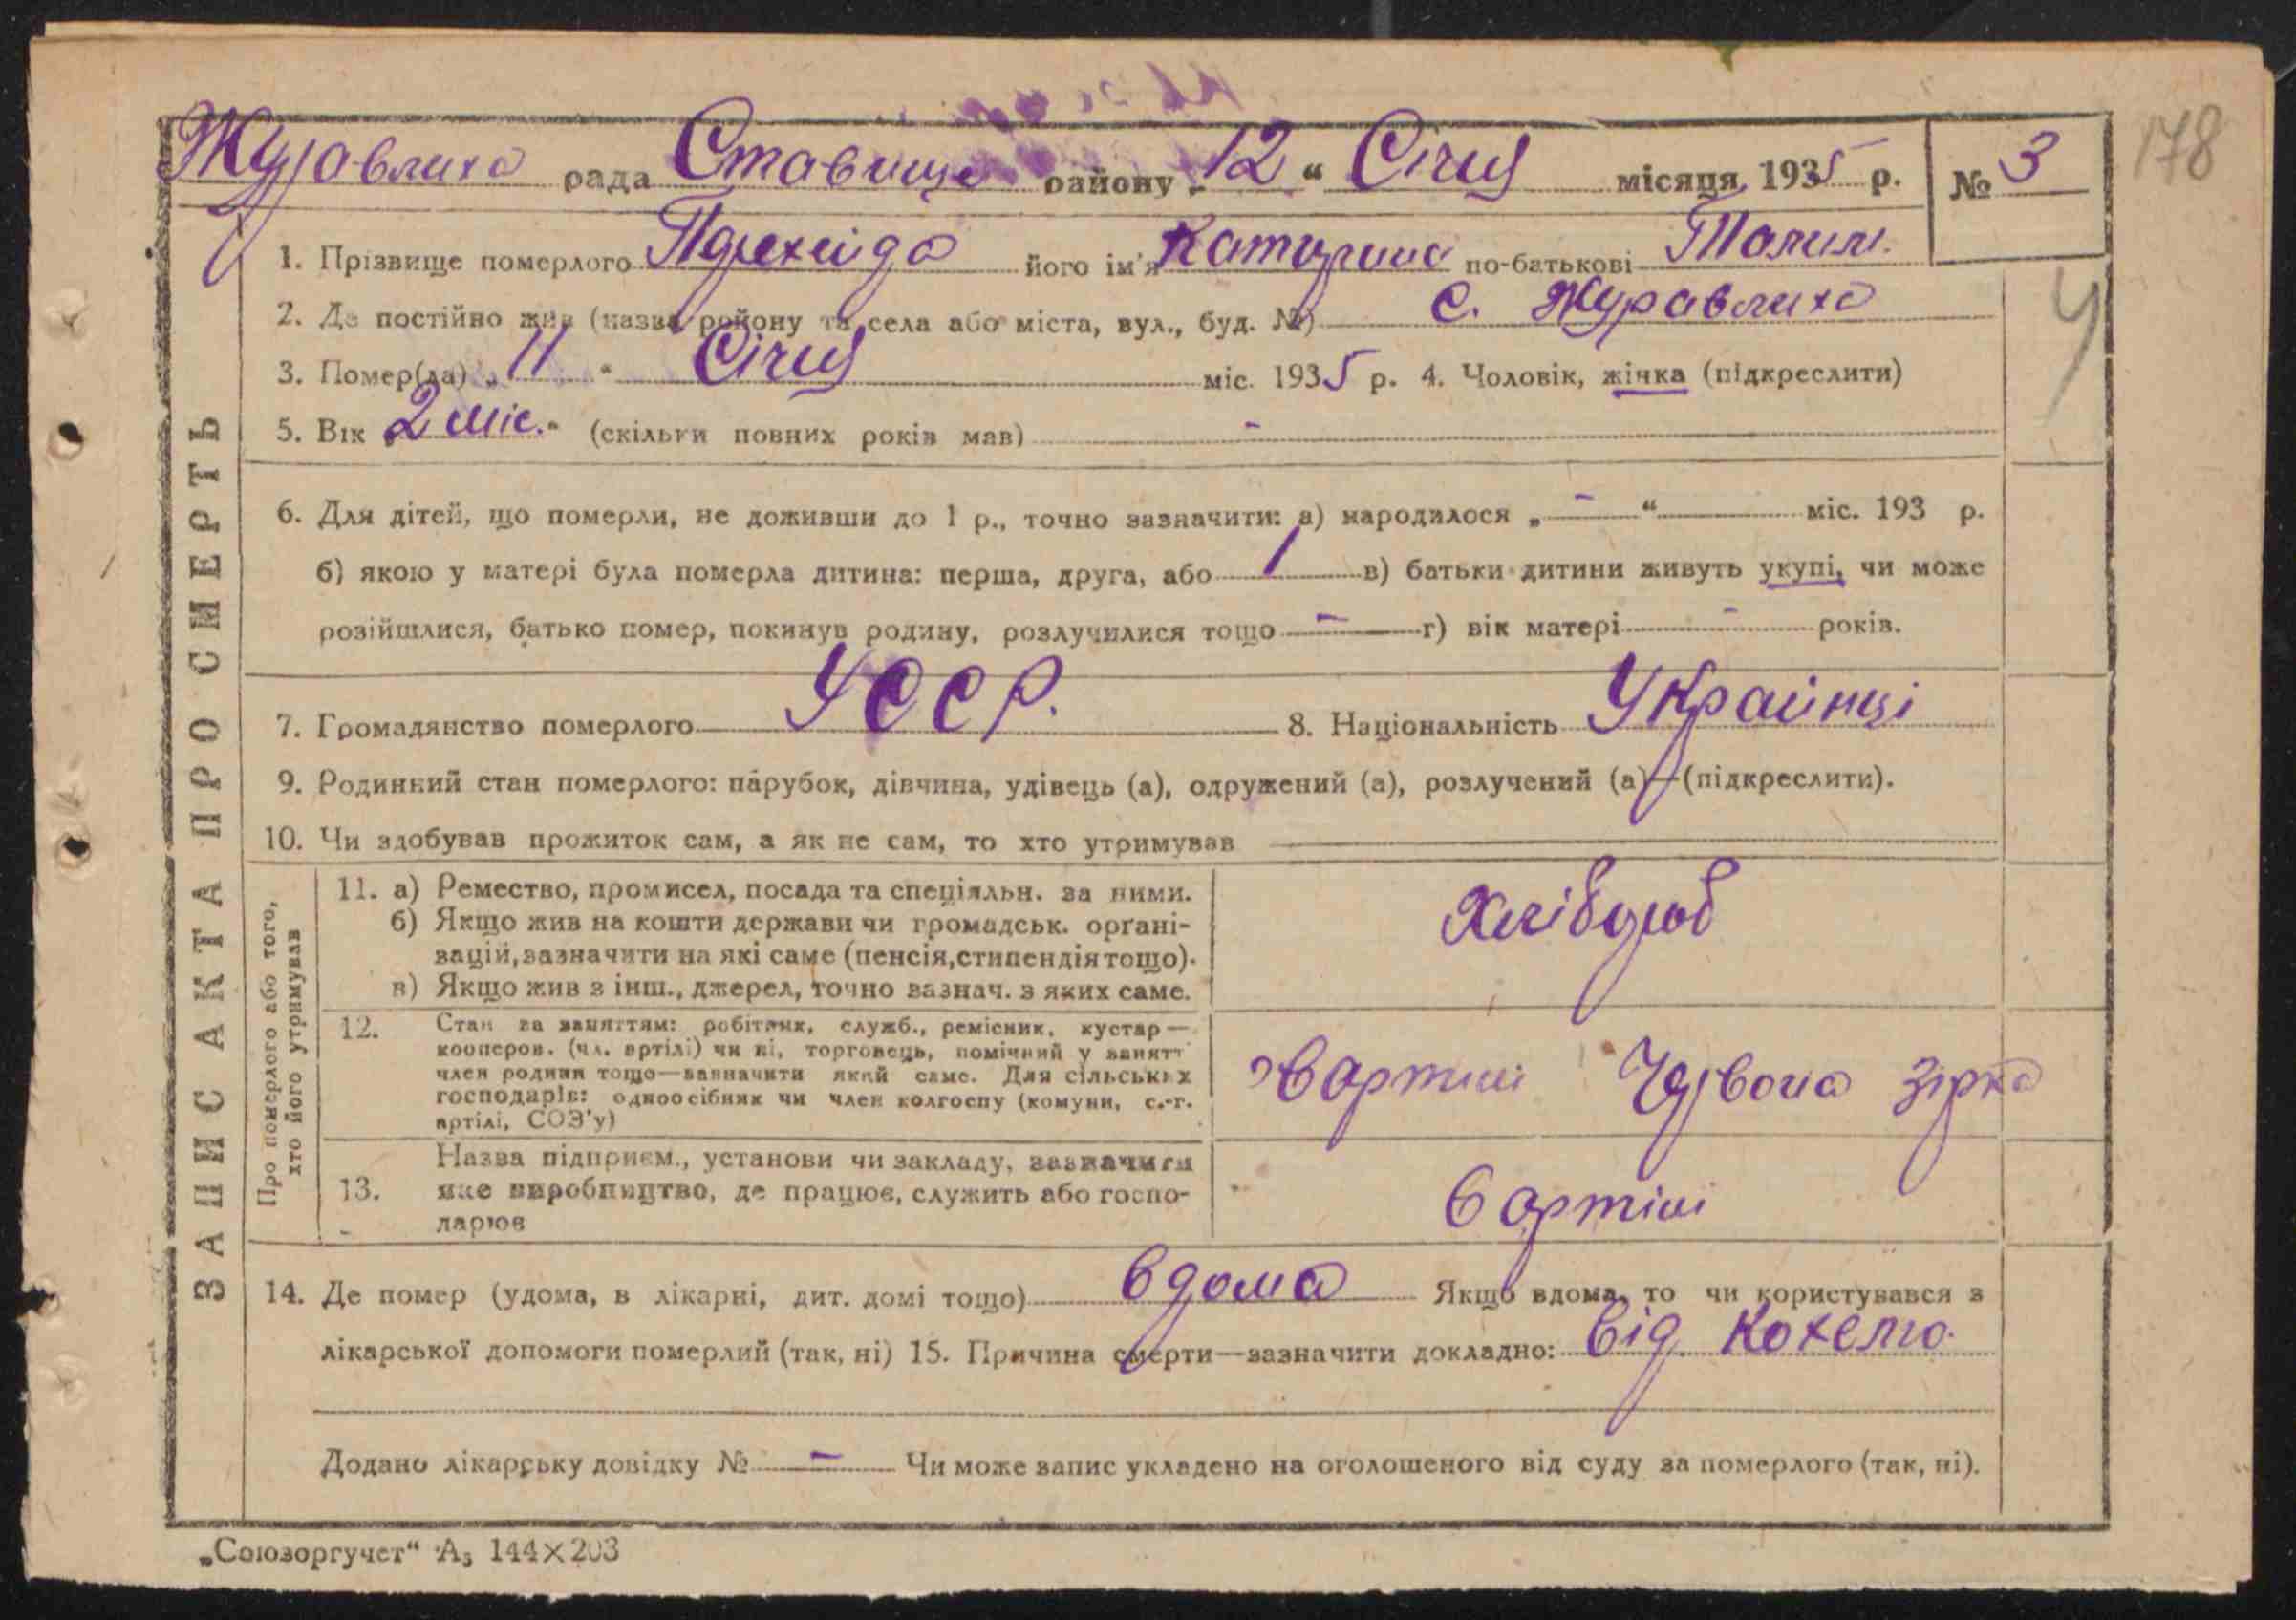 Журавлиха рада Ставище району „12“ Січня місяця, 1935 р. № 3
178
1. Прізвище померлого його ім'я Катирина по-батькові
2. Де постійно жив (назва району та села або міста, вул., буд. №) с. Журавлиха
3. Помер(ла) „11“ Січня міс. 1935 р. 4. Чоловік, жінка (підкреслити)
5. Вік „2 міс.“ (скільки повних років мав) -
6. Для дітей, що померли, не доживши до 1 р., точно зазначити: а) народилося „-“ міс. 193 р.
б) якою у матері була померла дитина: перша, друга, або 1 в) батьки дитини живуть укупі, чи може
розійшлися, батько помер, покинув родину, розлучилися тощо - г) вік матері - років.
7. Громадянство померлого УССР. 8. Національність Украінці
9. Родинний стан померлого: парубок, дівчина, удівець (а), одружений (а), розлучений (а)—(підкреслити).
10. Чи здобував прожиток сам, а як не сам, то хто утримував
ЗАПИС АКТА ПРО СМЕРТЬ
Про померлого або того,
хто його утримував
11. а) Ремество, промисел, посада та спеціяльн. за ними.
б) Якщо жив на кошти держави чи громадськ. орґані-
зацій, зазначити на які саме (пенсія, стипендія тощо).
в) Якщо жив з інш., джерел, точно зазнач. з яких саме.
Хлібороб
12. Стан за заняттям: робітник, служб., ремісник, кустар —
кооперов. (чл. артілі) чи ні, торговець, помічний у занятт
член родини тощо—зазначити який саме. Для сільських
господарів: одноосібник чи член колгоспу (комуни, с.-г.
артілі, СОЗ'у)
Вартілі Червона зірка
13. Назва підприєм., установи чи закладу, зазначити
яке виробництво, де працює, служить або госпо-
дарює
в артілі
14. Де помер (удома, в лікарні, дит. домі тощо) вдома Якщо вдома, то чи користувався з
лікарської допомоги померлий (так, ні) 15. Причина смерти—зазначити докладно: від кохелю.
Додано лікарську довідку № - Чи може запис укладено на оголошеного від суду за померлого (так, ні).
„Союзоргучет“ А₅ 144×203